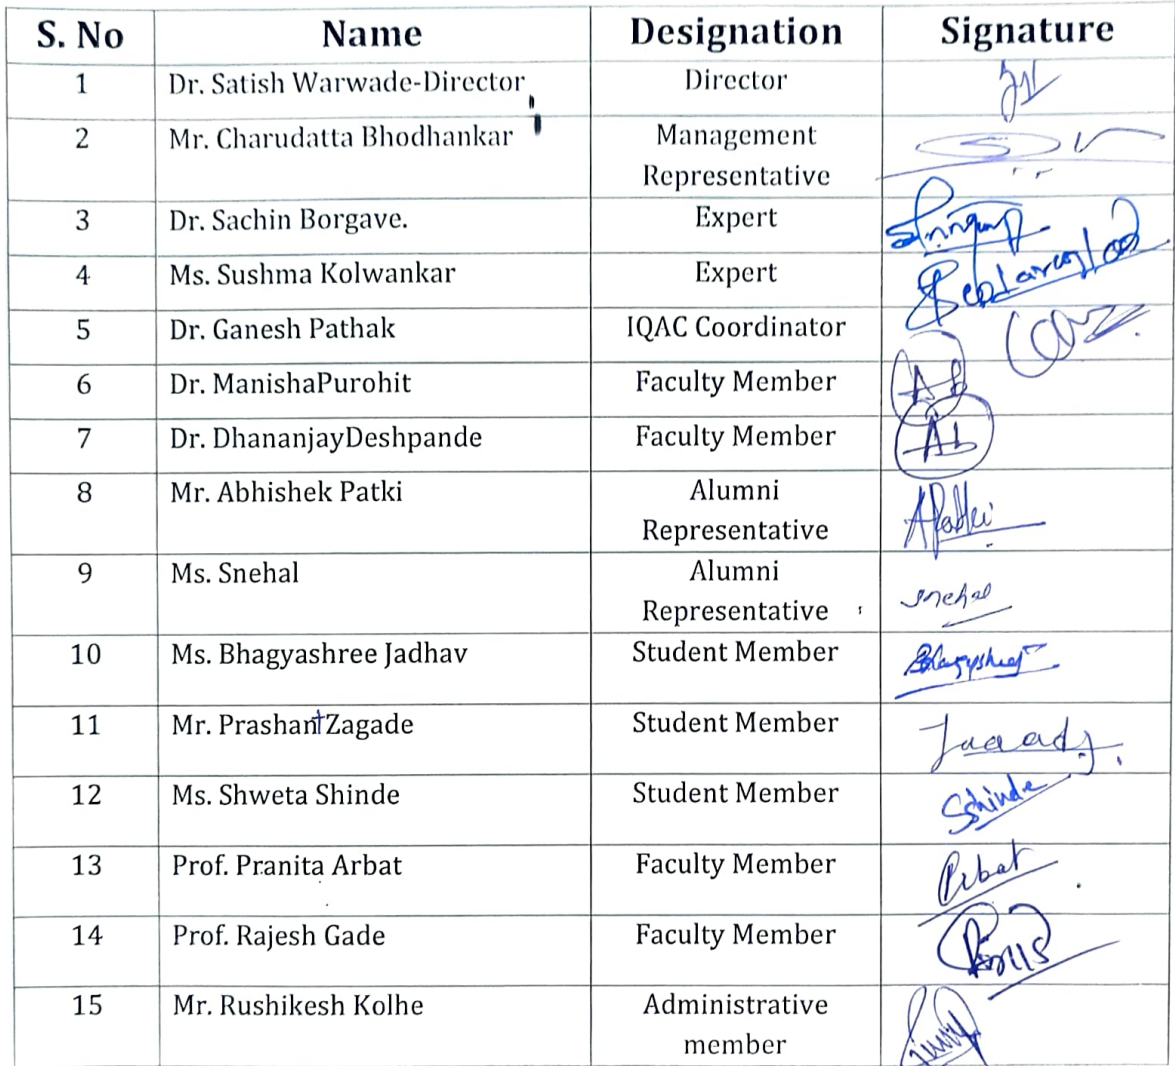 S. No Name Designation Signature
1 Dr. Satish Warwade-Director Director
2 Mr. Charudatta Bhodhankar Management
Representative
3 Dr. Sachin Borgave. Expert
4 Ms. Sushma Kolwankar Expert
5 Dr. Ganesh Pathak IQAC Coordinator
6 Dr. ManishaPurohit Faculty Member
7 Dr. DhananjayDeshpande Faculty Member
8 Mr. Abhishek Patki Alumni
Representative APatki
9 Ms. Snehal Alumni
Representative Snehal
10 Ms. Bhagyashree Jadhav Student Member
11 Mr. PrashantZagade Student Member
12 Ms. Shweta Shinde Student Member SShinde
13 Prof. Pranita Arbat Faculty Member
14 Prof. Rajesh Gade Faculty Member
15 Mr. Rushikesh Kolhe Administrative
member